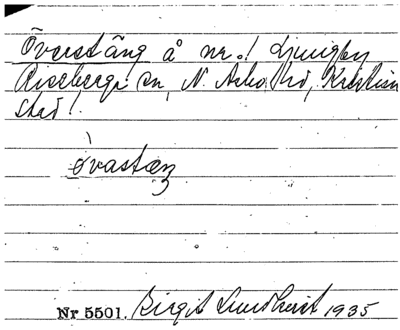 Överstång å nr. 1 Ljungby
Riseberga sn, N. Åsbo hd, Kristian
stad l.
òvastæŋ
Nr 5501. Birgit Lundkvist 1935